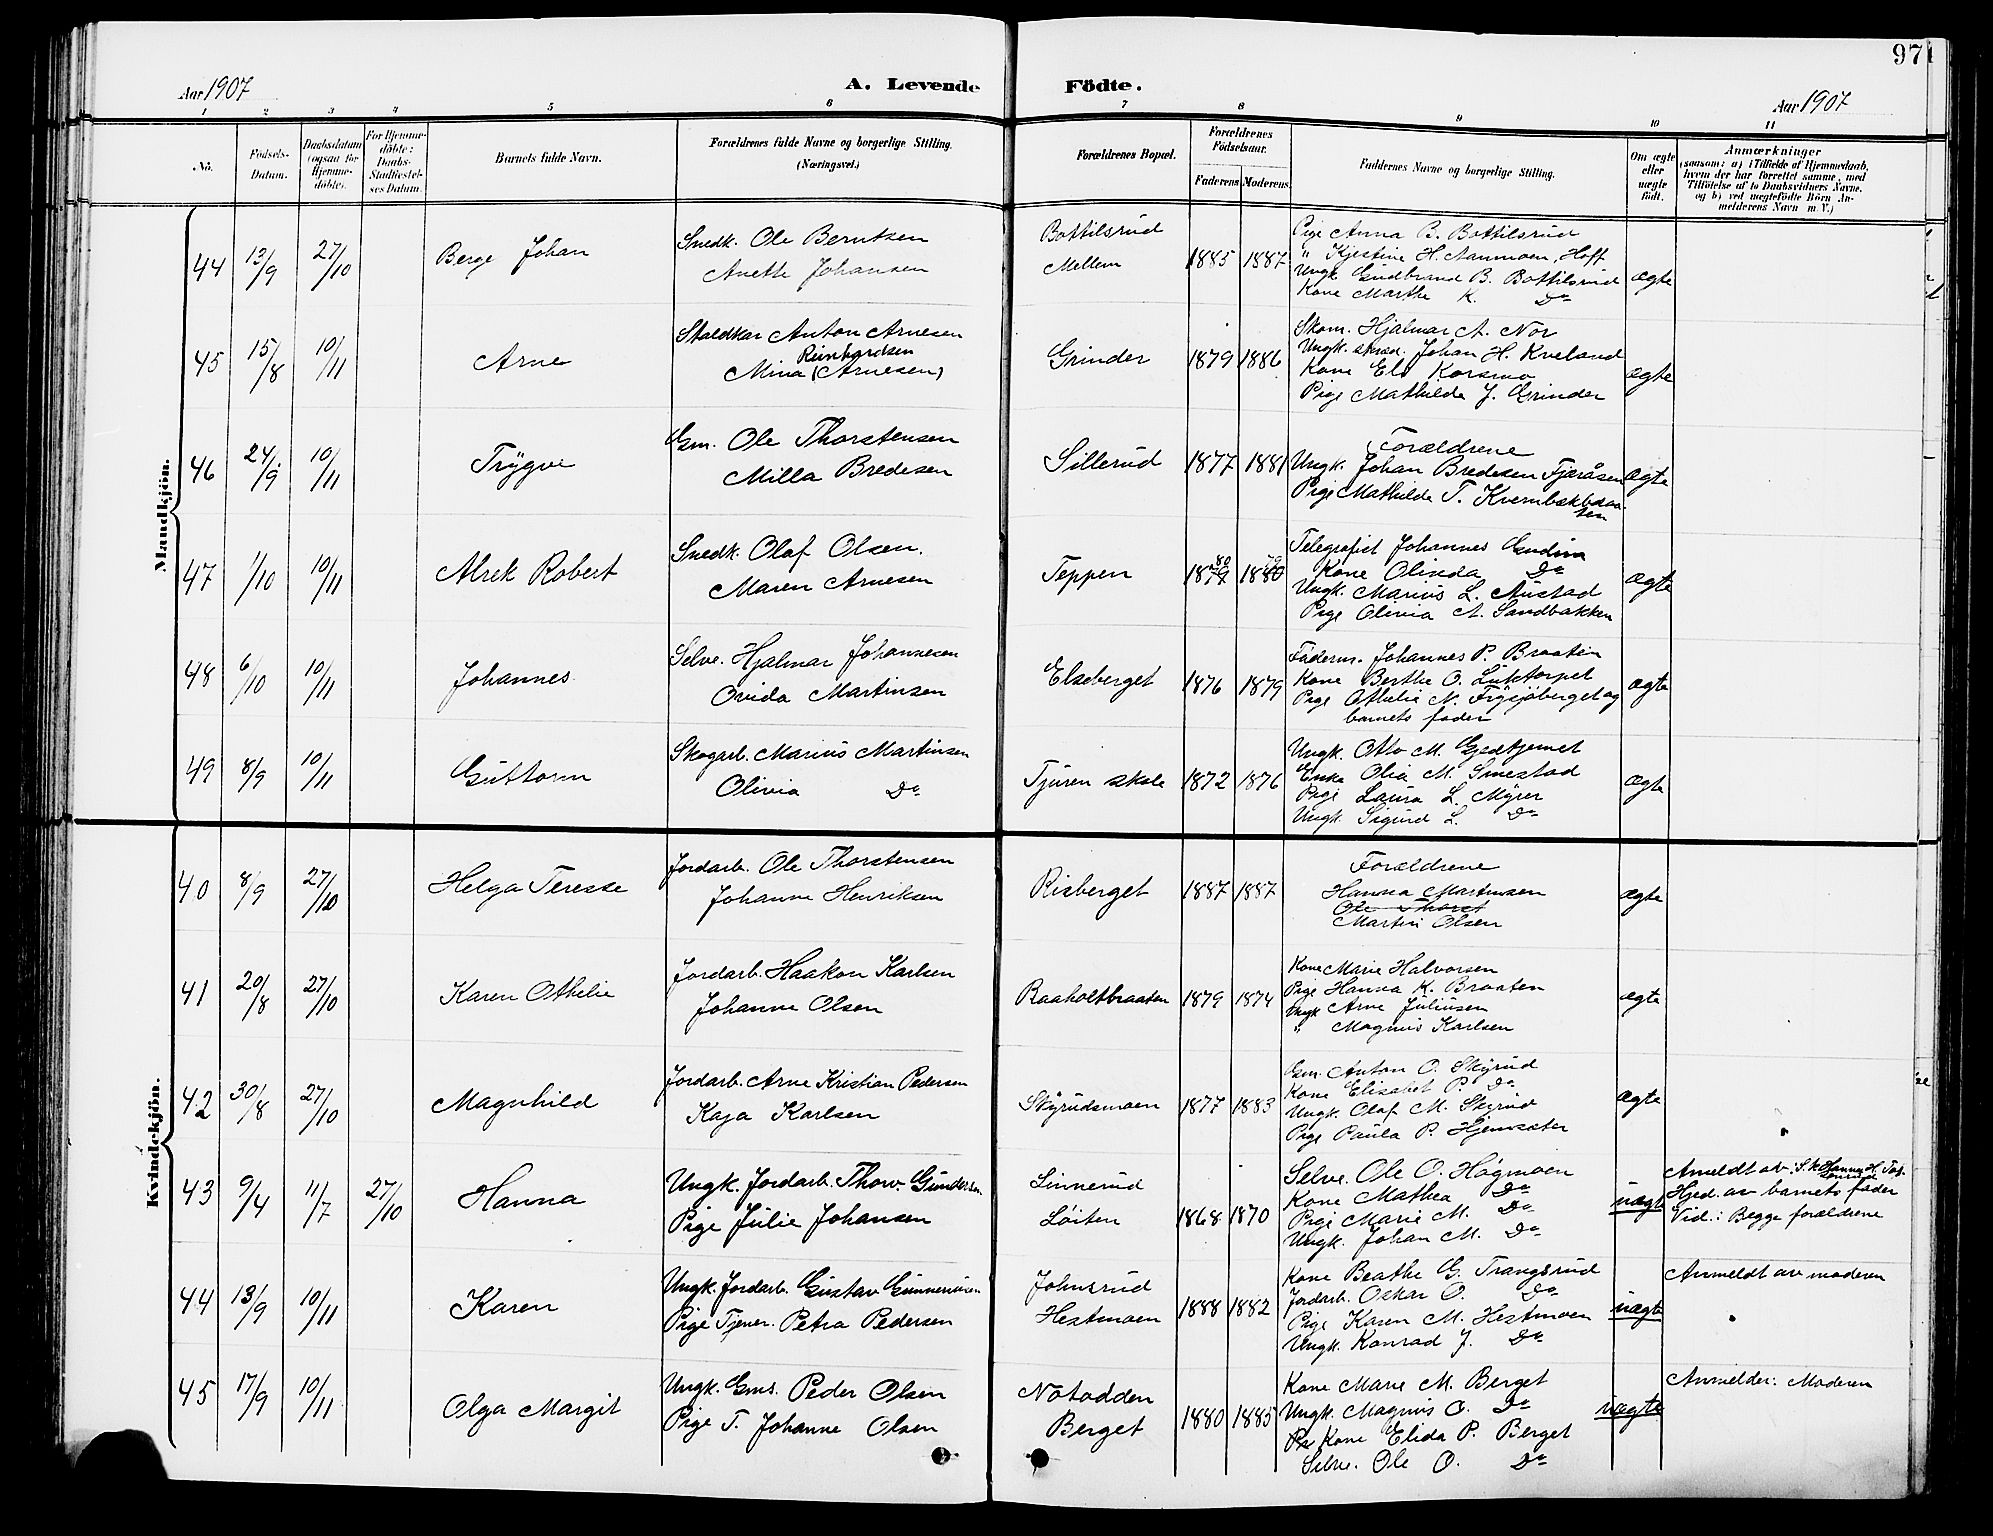 97
Aar 1907
A. Levende
Födte.
Aar 1907
1 2 3 4 5 6 7 8 9 10 11
No.
Födsels-Datum.
Daabsdatum (ogsaa for Hjemme-döbte).
For Hjemme-döbte: Daabs-Stadfæstel-ses Datum.
Barnets fulde Navn.
Forældrenes fulde Navne og borgerlige Stilling.
(Næringsvei.)
Forældrenes Bopæl.
Forældrenes Födselsaar.
Faderens Moderens
Faddernes Navne og borgerlige Stilling.
Om ægte eller uægte födt.
Anmærkninger
(saasom: a) i Tilfælde af Hjemmedaab,
hvem der har forrettet samme, med
Tilföielse af to Daabsvidners Navne.
og b) ved uægtefödte Börn An-
melderens Navn m. V.)
Mandkjön.
44 13/9 27/10 Berge Johan
Snedk. Ole Berntsen
Anette Johansen
Bottilsrud
Mellem
1885 1887
Pige Anna B. Bottilsrud
" Kjestine H. Aanmoen, Hoff
Ungk Gudbrand B. Bottilsrud
Kone Marthe K. Do
ægte
45 15/8 10/11 Arne
Staldkar Anton Arnesen
Reinhardsen
Mina (Arnesen)
Grinder 1879 1886
Skom. Hjalmar A. Nor
Ungk. skræd. Johan H. Kveland
Kone Els Korsmo
Pige Mathilde J. Grinder
ægte
46 24/9 10/11 Trygve
Gm. Ole Thorstensen
Milla Bredesen
Sillerud 1877 1881
Forældrene
Ungk. Johan Bredesen Fjæråsen
Pige Mathilde T. Kvernbækbraa-
ten
ægte
47 1/10 10/11 Alrek Robert
Snedk. Olaf Olsen.
Maren Arnesen
Teppen 1879 80 1880 79
Telegrafist Johannes Gudim
Kone Oliseda Do
Ungk. Marius L. Austad
Pige Olivia A. Sandbakken
ægte
48 6/10 10/11 Johannes
Selve. Hjalmar Johannesen
Ovida Martinsen
Elseberget 1876 1879
Föderm. Johannes P. Braaten
Kone Berthe O. Luktorpet
Pige Othelie N. Frysjöberget og
barnets fader
ægte
49 8/9 10/11 Guttorm
Skogarb. Marius Martinsen
Olivia Do
Tjuren skole 1872 1876
Ungk. Otto M. Gjedtjernet
Enke Olia M. Smestad
Pige Laura L. Myrer
Ungk. Sigurd L. Do
ægte
Kvindekjön.
40 8/9 27/10 Helga Teresse
Jordarb. Ole Thorstensen
Johanne Henriksen
Risberget 1887 1887
Forældrene
Hanna Martinsen
Ole Thorst
Martin Olsen
ægte
41 20/8 27/10 Karen Othelie
Jordarb. Haakon Karlsen
Johanne Olsen
Raaholtbraaten 1879 1874
Kone Marie Halvorsen
Pige Hanna K. Braaten
Ungk Arne Juliusen
" Magnus Karlsen
ægte
42 30/8 27/10 Magnhild
Jordarb. Arne Kristian Pedersen
Kaja Karlsen
Skyrudsmoen 1877 1883
Gm. Anton O. Skyrud
Kone Elisabet P. Do
Ungk. Olaf M. Skyrud
Pige Paula P. Hjemsæter
ægte
43 9/4 11/7 27/10 Hanna
Ungk. Jordarb. Thorv. Gundersen
Pige Julie Johansen
Linnerud
Löiten
1868 1870
Selve. Ole O. Högmoen
Kone Mathea Do
Pige Marie M. Do
Ungk. Johan M. Do
uægte
Anmeldt av:
Hjed. av barnets fader
Vid.: Begge forældrene
44 13/9 10/11 Karen
Ungk. Jordarb. Gustav Gunneriusen
Pige Tjener. Petra Pedersen
Johnsrud
Hestmoen
1888 1882
Kone Beathe G. Trangsrud
Jordarb. Oskar O. Do
Pige Karen M. Hestmoen
Ungk. Konrad J. Do
uægte
Anmeldt av moderen
45 17/9 10/11 Olga Margit
Ungk. Gms. Peder Olsen
Pige T. Johanne Olsen
Notodden
Berget
1880 1885
Kone Marie M. Berget
Ungk. Magnus O. Do
Kone Elida P. Berget
Selve. Ole O. Do
uægte
Anmelder: Moderen